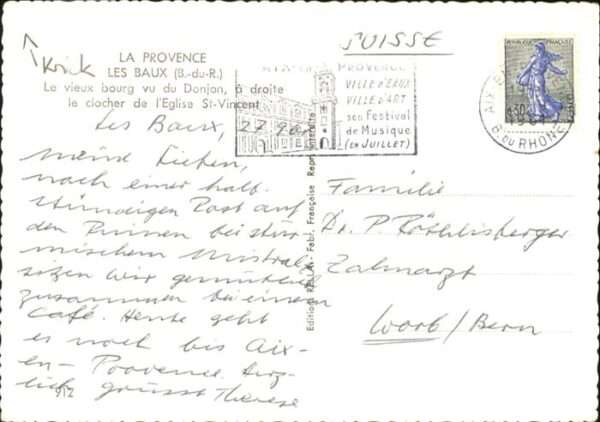 SUISSE
Krick
LA PROVENCE
LES BAUX (B.-du-R.)
Le vieux bourg vu du Donjon, à droite
le clocher de l'Eglise St-Vincent
PROVENCE
VILLE D'EAUX
VILLE D'ART
son Festival
de Musique
(EN JUILLET)
REPUBLIQUE FRANÇAISE
0,30
POSTES
AIX EN
B. DU RHONE
Les Baux, 27. Sept.
meine Lieben,
nach einer halb-
stündigen Rast auf
den Ruinen bei stür-
mischem Mistral
sitzen wir gemütlich
zusammen bei einem
Café. Heute geht
es noch bis Aix-
en-Provence. Herz-
lich grüsst Therese
912
Editions RELLA - Fabr. Française Reproduction interdite
Familie
Dr. P. Röthlisberger
Zahnarzt
Worb/Bern